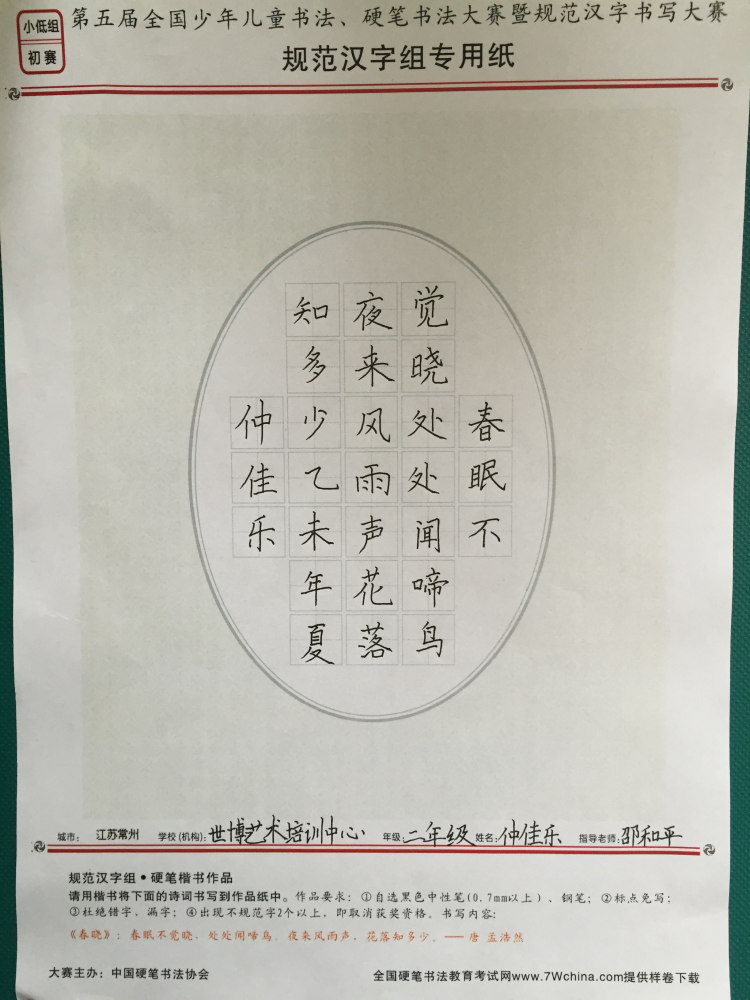 小低组
初赛
第五届全国少年儿童书法、硬笔书法大赛暨规范汉字书写大赛
规范汉字组专用纸
春眠不
觉晓处处闻啼鸟
夜来风雨声花落
知多少乙未年夏
仲佳乐
城市： 江苏常州 学校(机构)：世博艺术培训中心 年级：二年级 姓名：仲佳乐 指导老师：邵和平
规范汉字组•硬笔楷书作品
请用楷书将下面的诗词书写到作品纸中。作品要求：①自选黑色中性笔(0.7mm以上)、钢笔；②标点免写；
③杜绝错字、漏字；④出现不规范字2个以上，即取消获奖资格。书写内容：
《春晓》：春眠不觉晓，处处闻啼鸟。夜来风雨声，花落知多少。——唐 孟浩然
大赛主办：中国硬笔书法协会 全国硬笔书法教育考试网www.7Wchina.com提供样卷下载